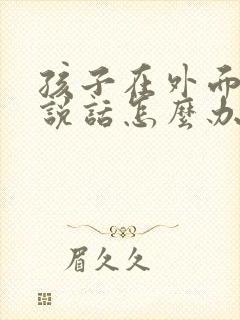 孩子在外而
說話怎麼办
眉久久